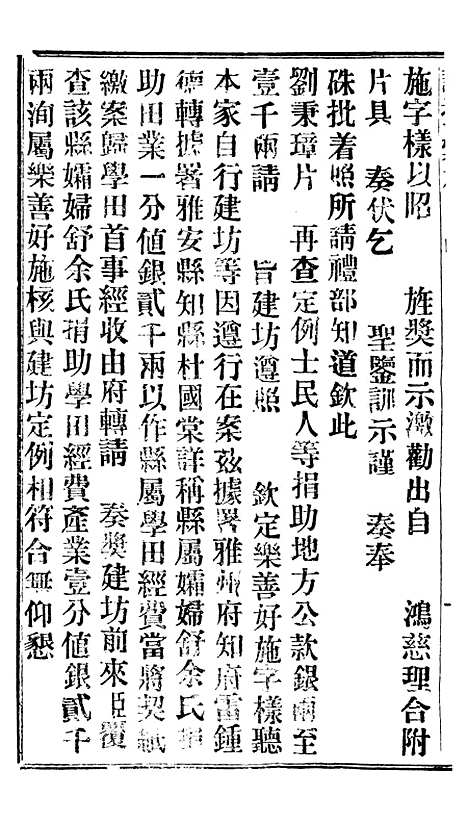 施字樣以昭　旌獎而示激勸出自　鴻慈理合附
片具　奏伏乞　聖鑒訓示謹　奏奉
硃批着照所請禮部知道欽此
劉秉璋片　再查定例士民人等捐助地方公款銀兩至
壹千兩請　旨建坊遵照　欽定樂善好施字樣聽
本家自行建坊等因遵行在案茲據署雅州府知府雷鍾
德轉據署雅安縣知縣杜國棠詳稱縣屬孀婦舒余氏捐
助田業一分値銀貳千兩以作縣屬學田經費當將契紙
繳案歸學田首事經收由府轉請　奏獎建坊前來臣覆
查該縣孀婦舒余氏捐助學田經費產業壹分値銀貳千
兩洵屬樂善好施核與建坊定例相符合無仰懇